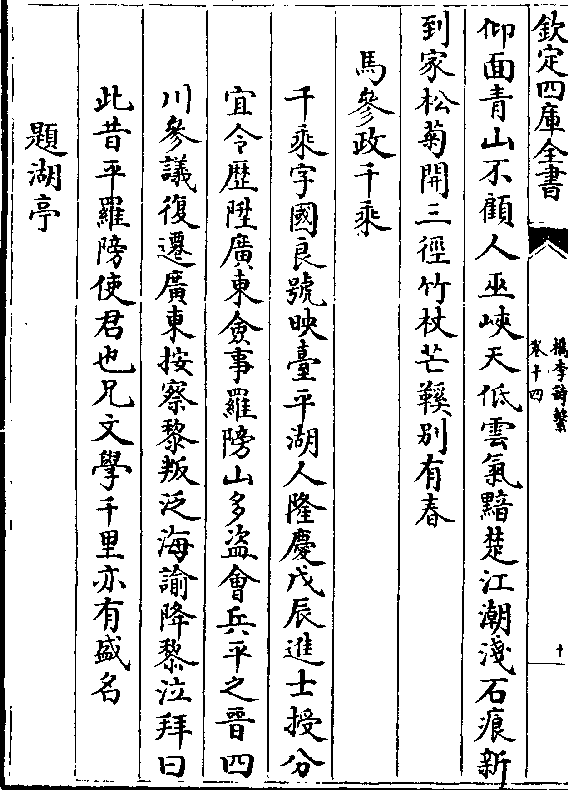 欽定四庫全書
檇李詩繫
卷十四
十
仰面青山不顧人巫峽天低雲氣黯楚江潮淺石痕新
到家松菊開三徑竹杖芒鞵别有春
馬參政千乘
千乘字國良號映臺平湖人隆慶戊辰進士授分
宜令歴陞廣東僉事羅𣃁山多盗會兵平之晉四
川參議復遷廣東按察黎叛泛海諭降黎泣拜曰
此昔平羅𣃁使君也兄文學千里亦有盛名
題湖亭